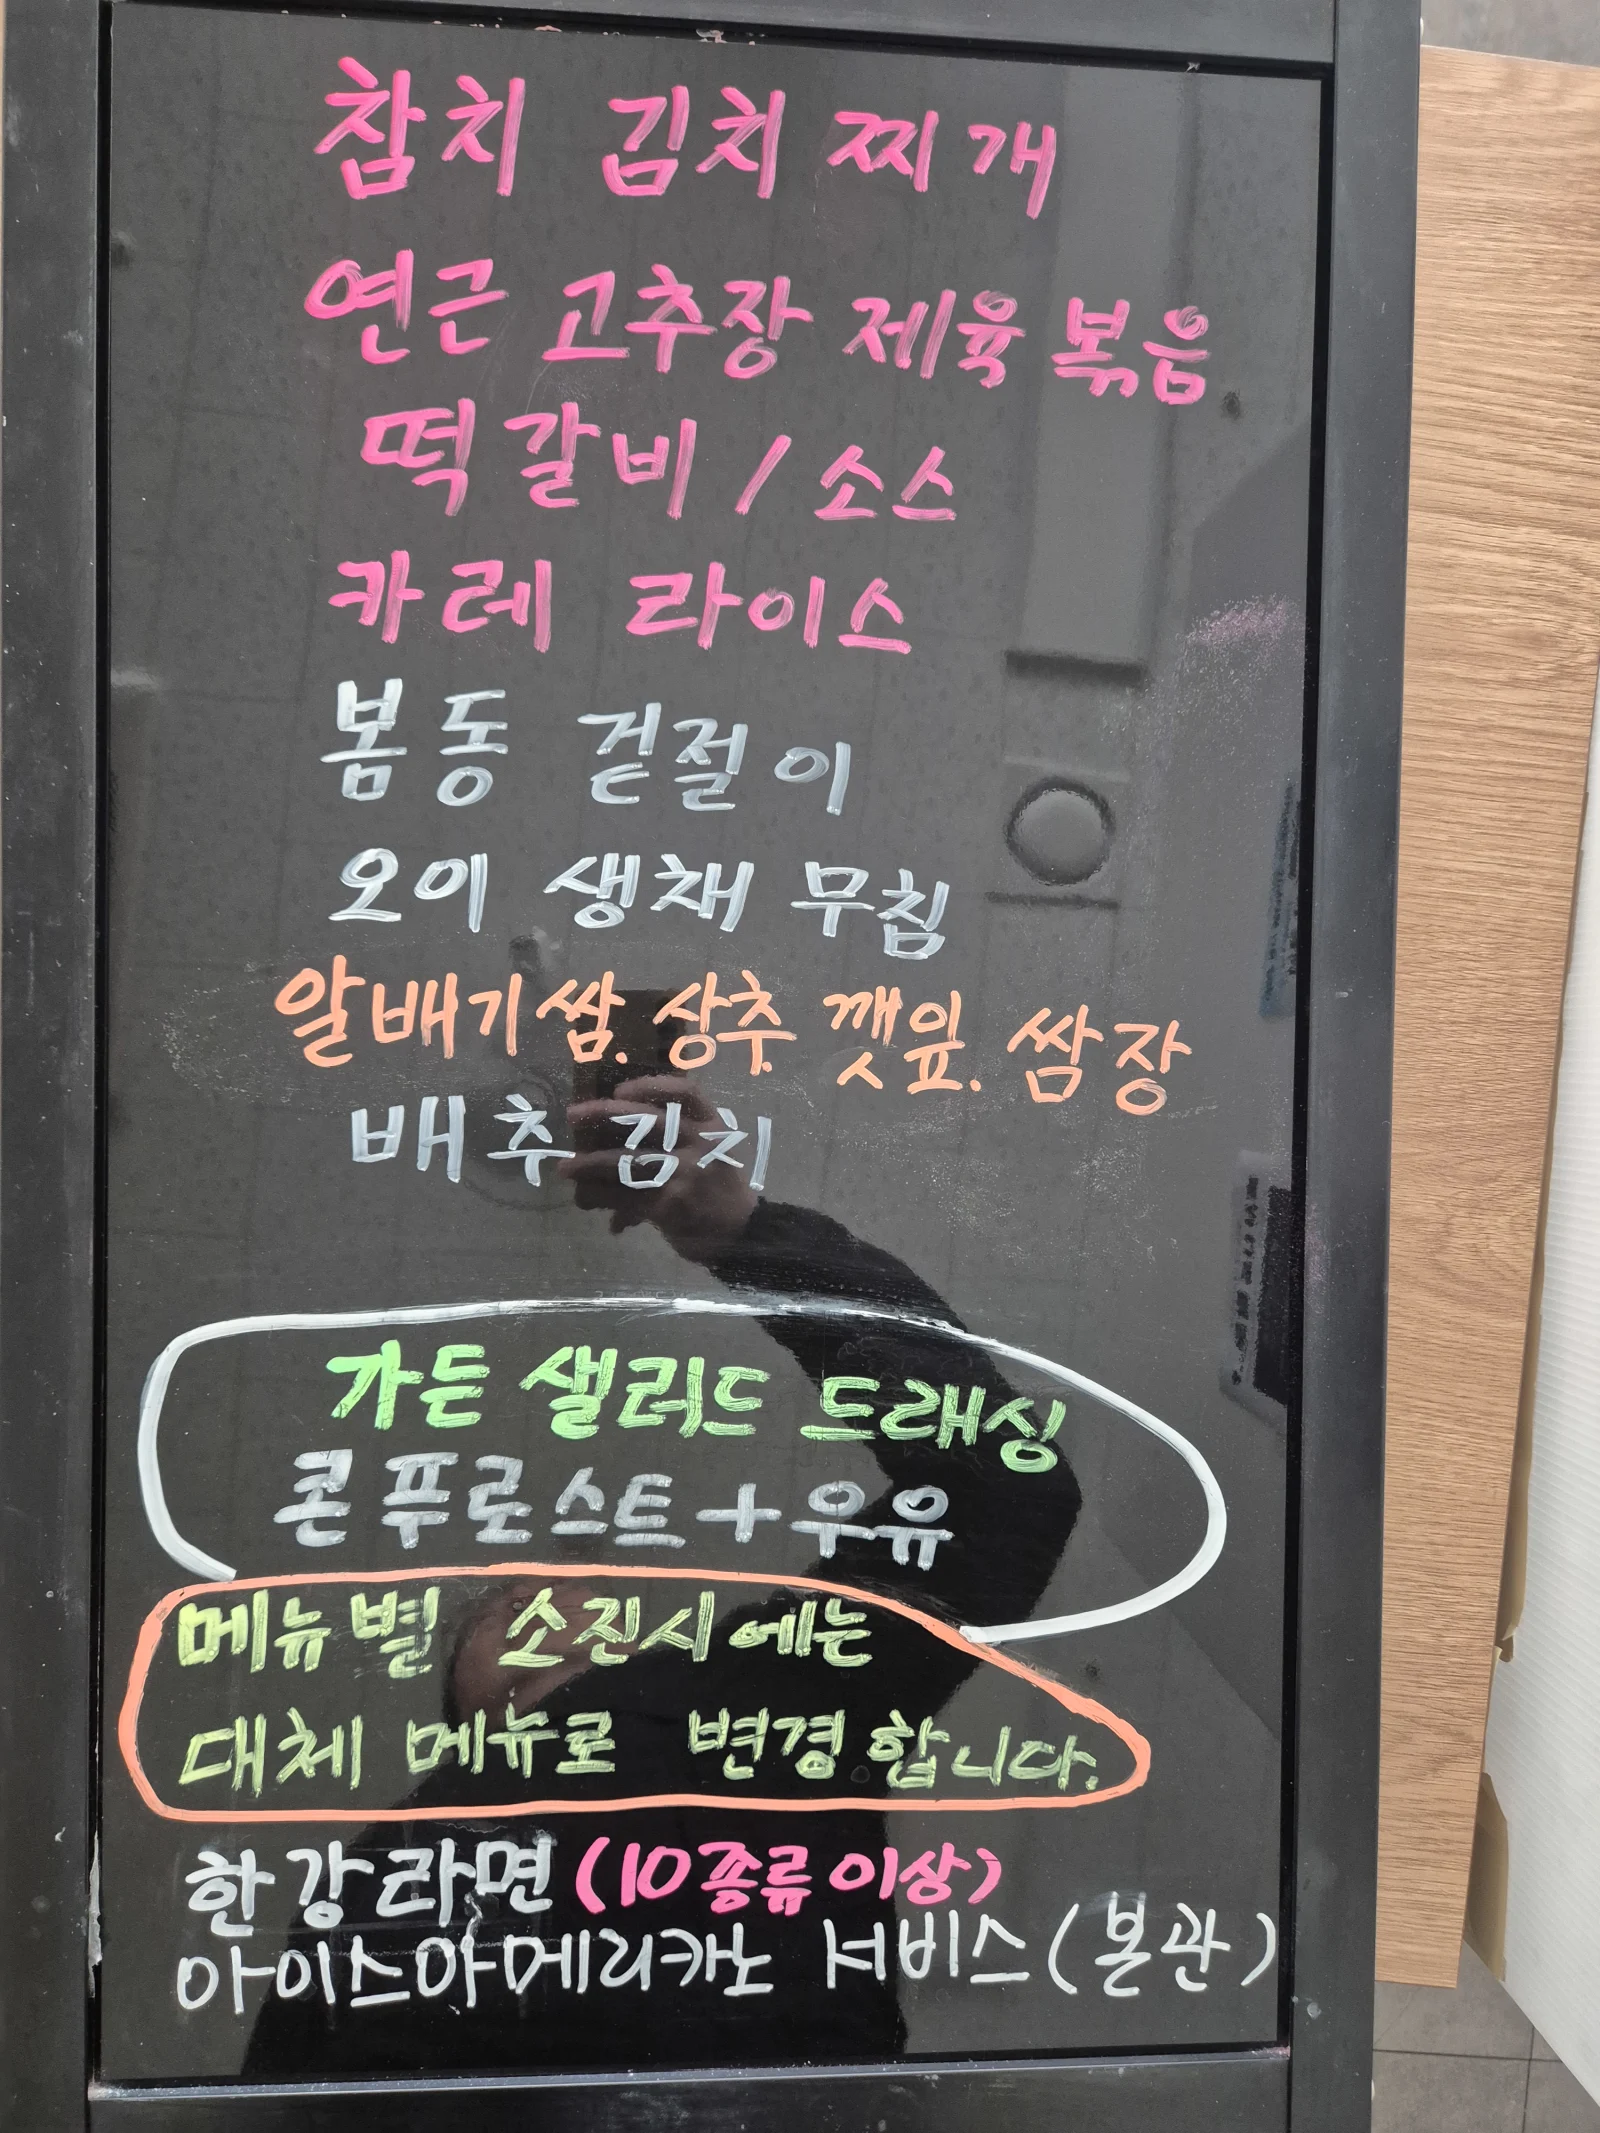 참치 김치 찌개
연근 고추장 제육 볶음
떡갈비 / 소스
카레 라이스
봄동 겉절이
오이 생채 무침
알배기쌈. 상추. 깻잎. 쌈장
배추 김치
가든 샐러드 드래싱
콘푸로스트+우유
메뉴별 소진시에는
대체 메뉴로 변경합니다.
한강라면 (10종류이상)
아이스아메리카노 서비스 (본관)